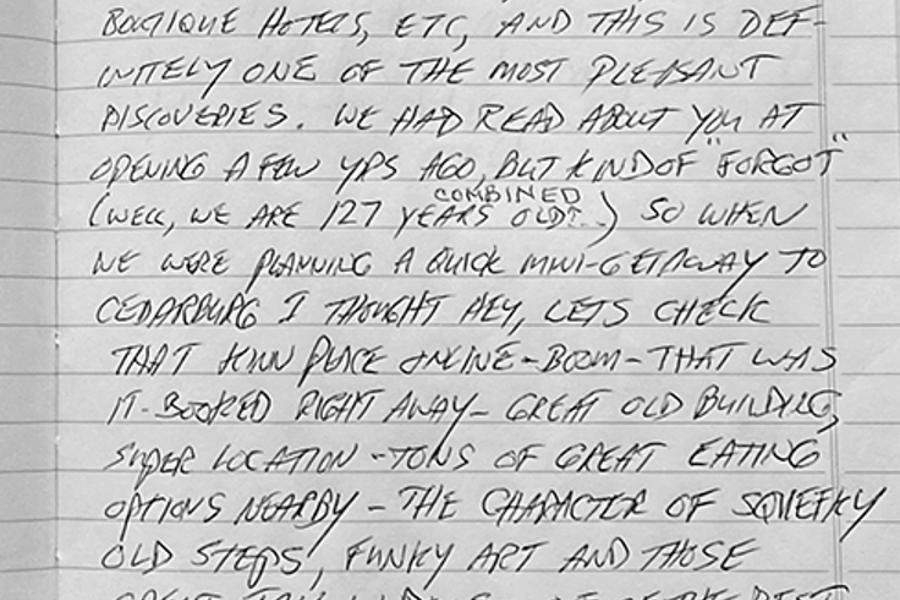 BOUTIQUE HOTELS, ETC, AND THIS IS DEF-
INITELY ONE OF THE MOST PLEASANT
DISCOVERIES. WE HAD READ ABOUT YOU AT
OPENING A FEW YRS AGO, BUT KIND OF "FORGOT"
COMBINED
(WELL, WE ARE 127 YEARS OLD!..) SO WHEN
WE WERE PLANNING A QUICK MINI-GETAWAY TO
CEDARBURG I THOUGHT HEY, LETS CHECK
THAT KINN PLACE ONLINE-BOOM-THAT WAS
IT-BOOKED RIGHT AWAY- GREAT OLD BUILDING,
SUPER LOCATION -TONS OF GREAT EATING
OPTIONS NEARBY - THE CHARACTER OF SQUEEKY
OLD STEPS, FUNKY ART AND THOSE
GREAT TALL WINDOWS OF THE BEST